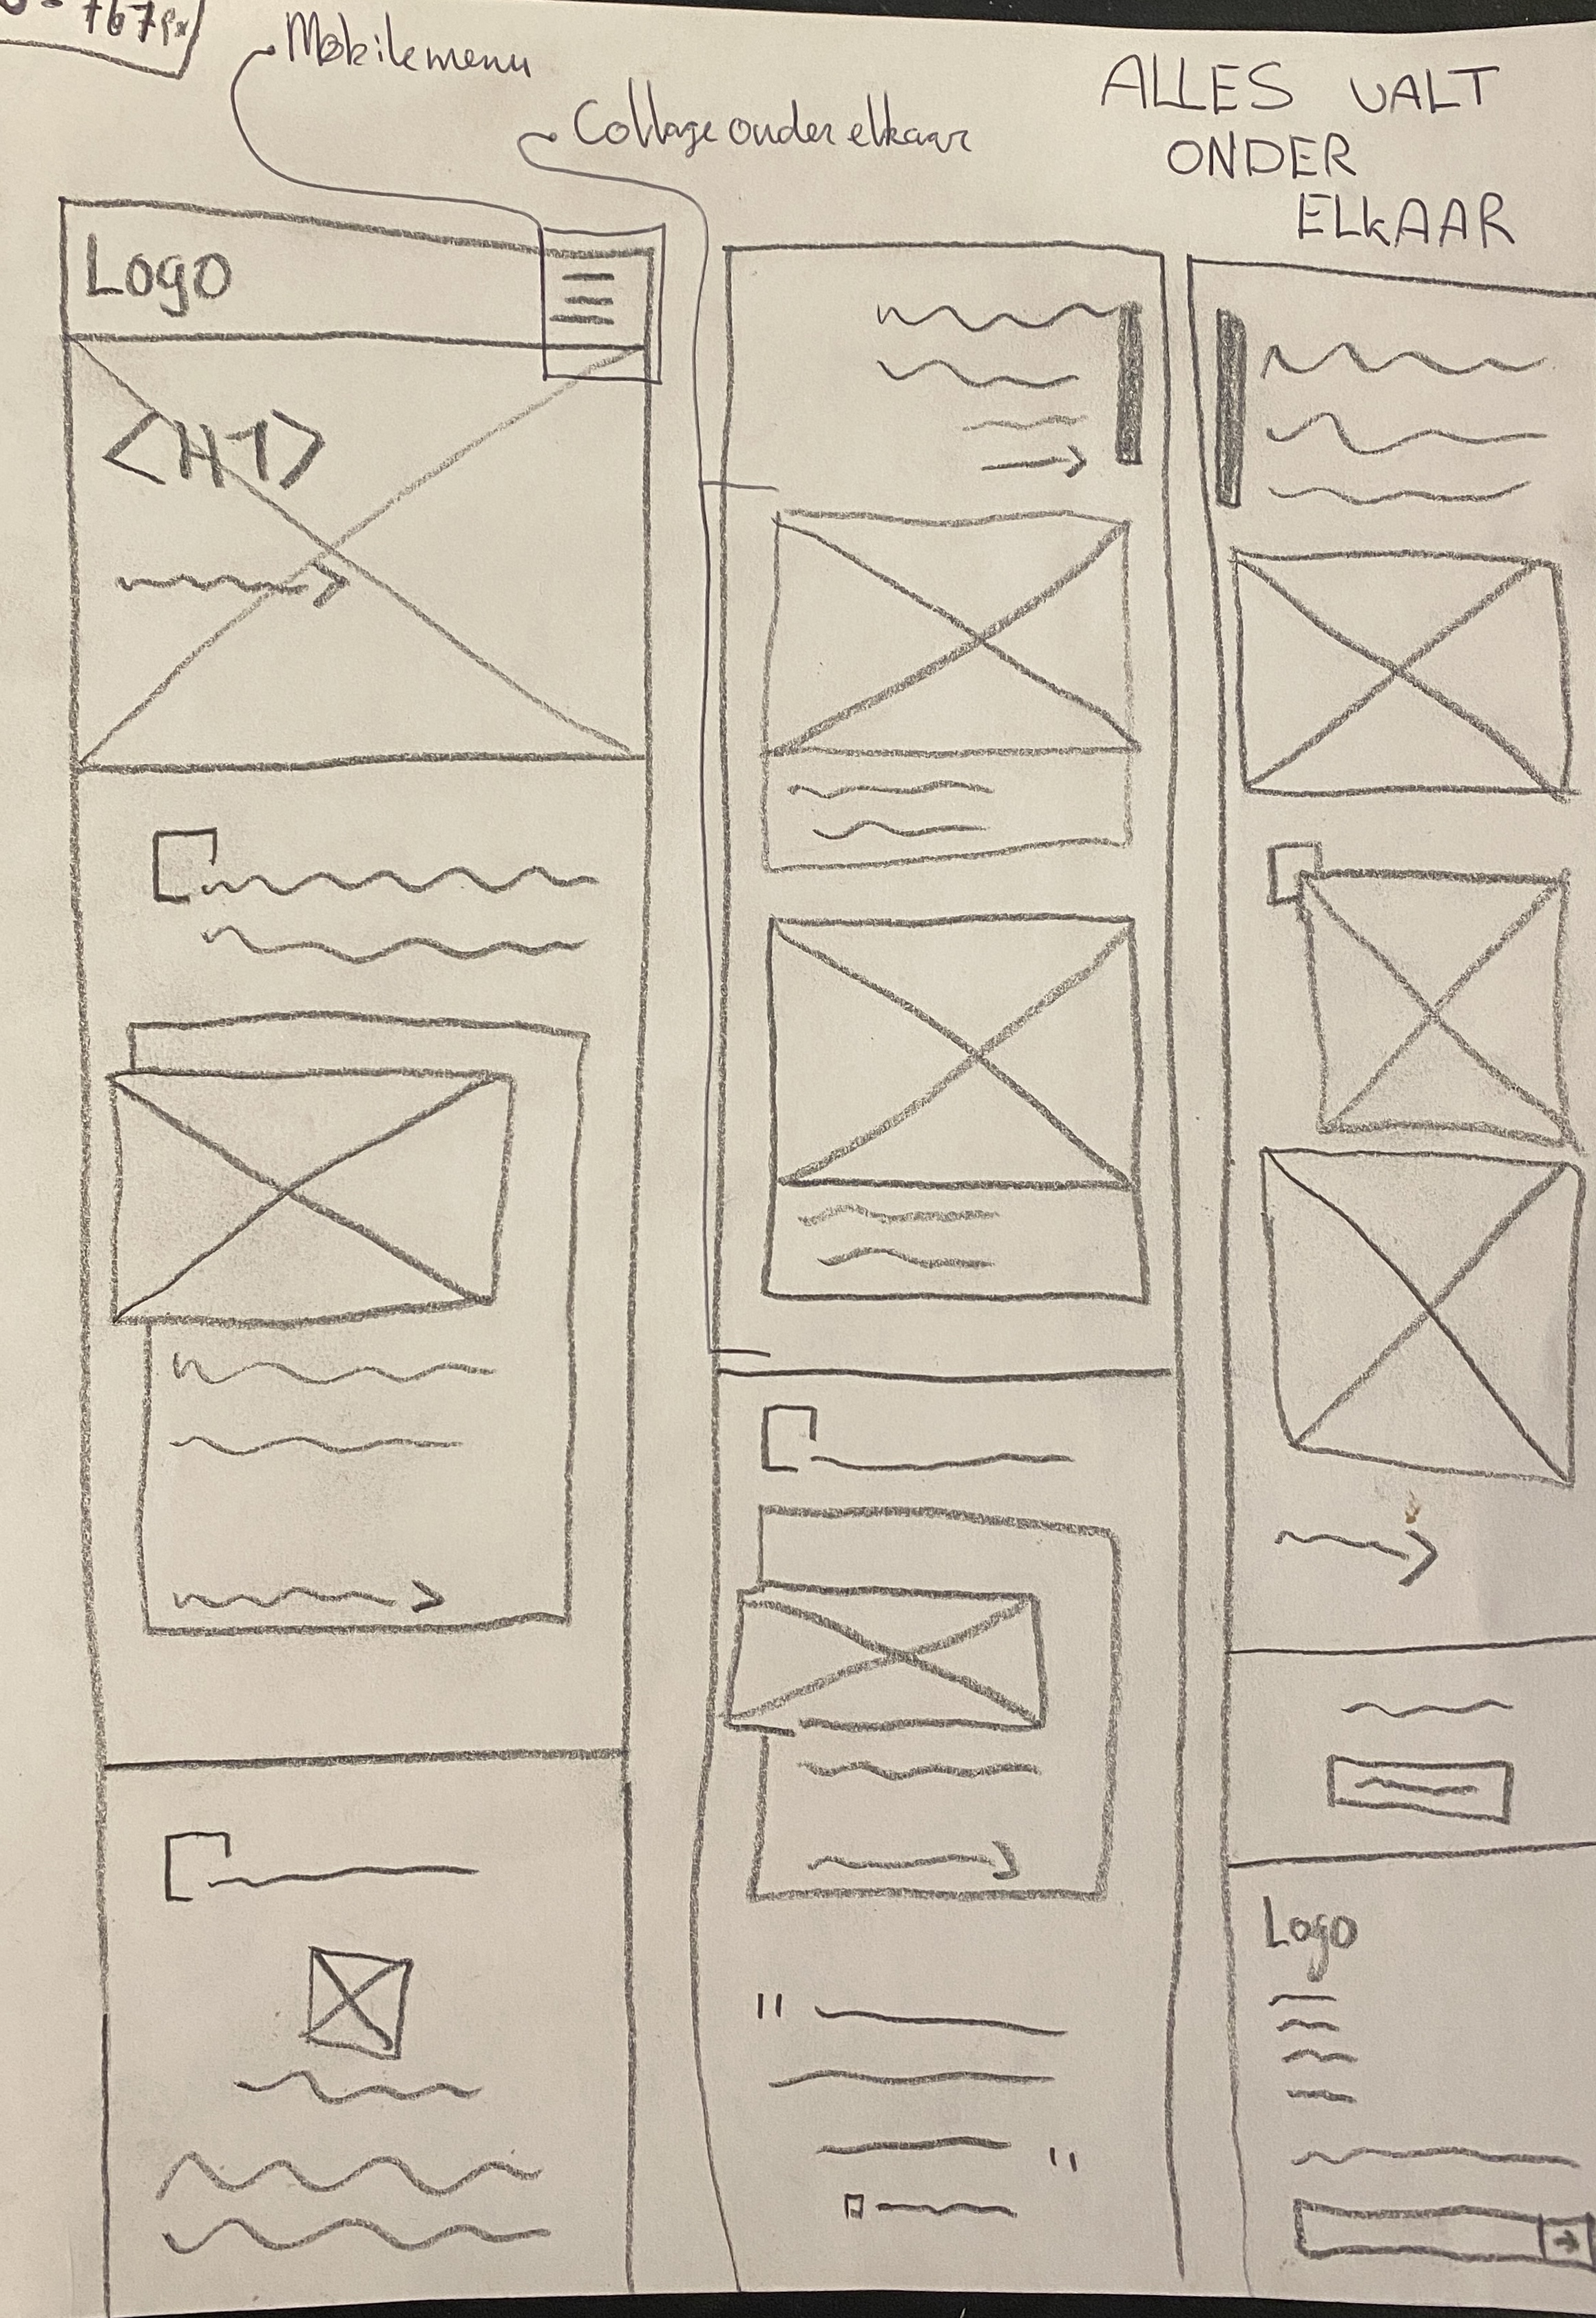 - 767px
Mobile menu
Collage onder elkaar
ALLES VALT
ONDER
ELKAAR
Logo
<H1>
"
"
Logo